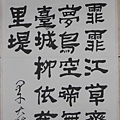 霏霏江草齊
夢鳥空啼無
臺城柳依舊
里堤